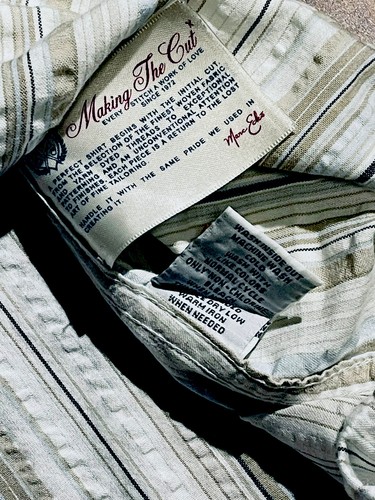 Making The Cut
EVERY STITCH A WORK OF LOVE
SINCE 1972
A PERFECT SHIRT BEGINS WITH THE INITIAL CUT.
FROM THE SELECTION OF THE FINEST WOVEN FABRIC
AND THREADS TO OF EXCEPTIONAL
UNCONVENTIONAL ATTENTION
ART OF FINE TAILORING. EACH PIECE IS A RETURN TO THE LOST
HANDLE IT WITH THE SAME PRIDE WE USED IN
CREATING IT.
Marc Ecko
WASH INSIDE OUT
MACHINE WASH
COLD
NORMAL CYCLE
ONLY NON-CHLOR
DRY LOW
WARM IRON
WHEN NEEDED